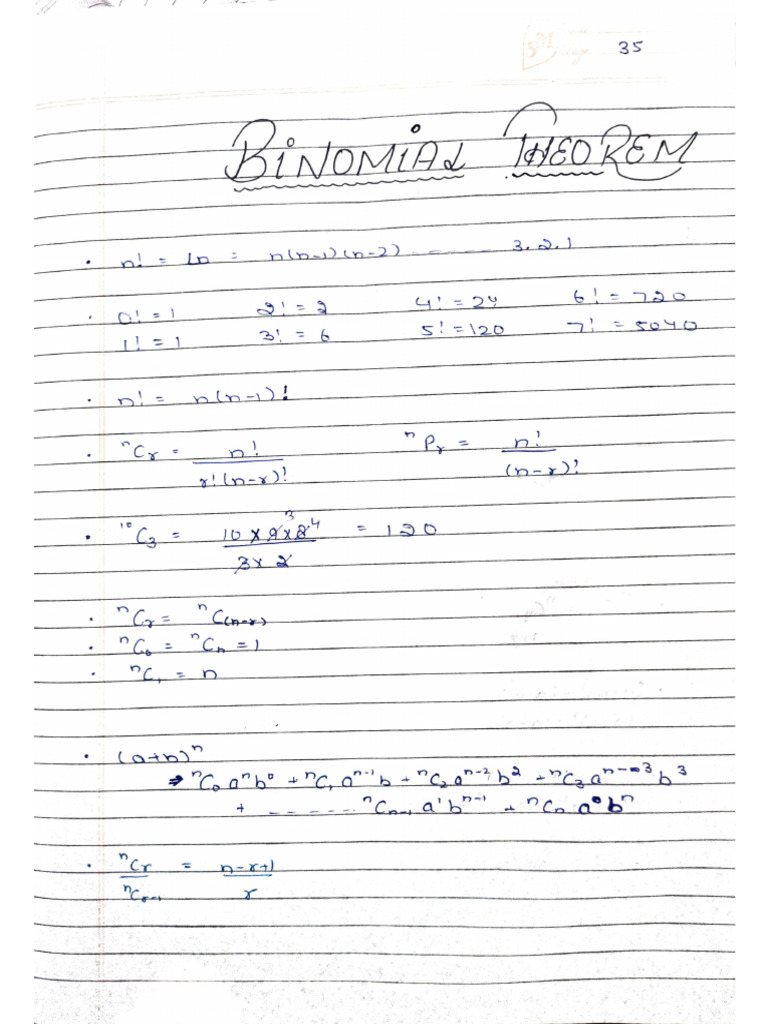 35
BINOMIAL THEOREM
• n! = Ln = n(n-1)(n-2) ------- 3.2.1
• 0! = 1 2! = 2 4! = 24 6! = 720
1! = 1 3! = 6 5! = 120 7! = 5040
• n! = n(n-1)!
• ⁿCᵣ = n! / r!(n-r)! ⁿPᵣ = n! / (n-r)!
• ¹⁰C₃ = 10 × 9³ × 8⁴ / 3 × 2 = 120
• ⁿCᵣ = ⁿC(n-r)
• ⁿC₀ = ⁿCₙ = 1
• ⁿC₁ = n
• (a+b)ⁿ
⇒ ⁿC₀ aⁿb⁰ + ⁿC₁ aⁿ⁻¹b + ⁿC₂ aⁿ⁻²b² + ⁿC₃ aⁿ⁻³b³
+ ------- ⁿCₙ₋₁ a¹bⁿ⁻¹ + ⁿCₙ a⁰bⁿ
• ⁿCᵣ / ⁿCᵣ₋₁ = n-r+1 / r